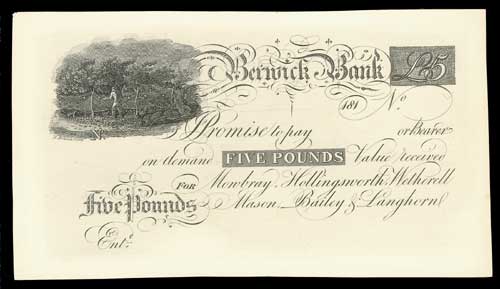 Berwick Bank £5
181 No
I Promise to pay or Bearer
on demand FIVE POUNDS Value received
FOR Mowbray, Hollingsworth, Wetherell
Five Pounds Mason, Bailey & Langhorn
Entd